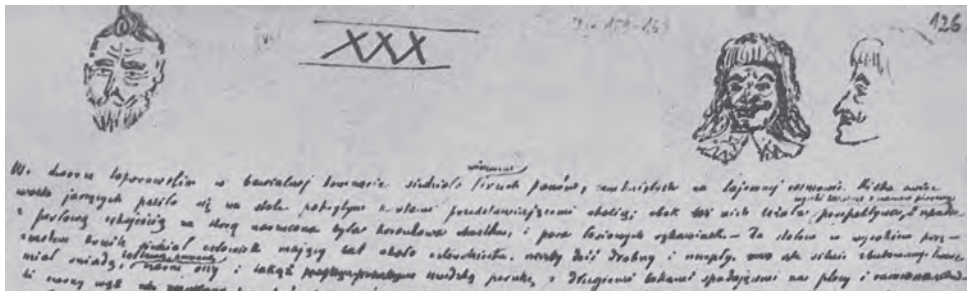 126
XXX
wieczorem
W dworze toporowskim w bawialnej komnacie siedziało trzech panów, zamkniętych na tajemnej rozmowie. Kilka świec
wysoki kapelusz z czarnem piórem
jarzących paliło się na stole pokrytym kartami przedstawiającemi okolicę; obok nich leżała perspektywa, szpada
z perłową rękojeścią na którą narzucona była koronkowa chustka, i para łosiowych rękawiczek – Za stołem w wysokiem
krześle siedział człowiek mający lat około czterdziestu, dość drobny i szczupły, ale silnie zbudowany. Twarz
miał śniadą, oczy i takąż szwedzką perukę, z długiemi lokami spadającemi na plecy i ramiona
czarny wąs